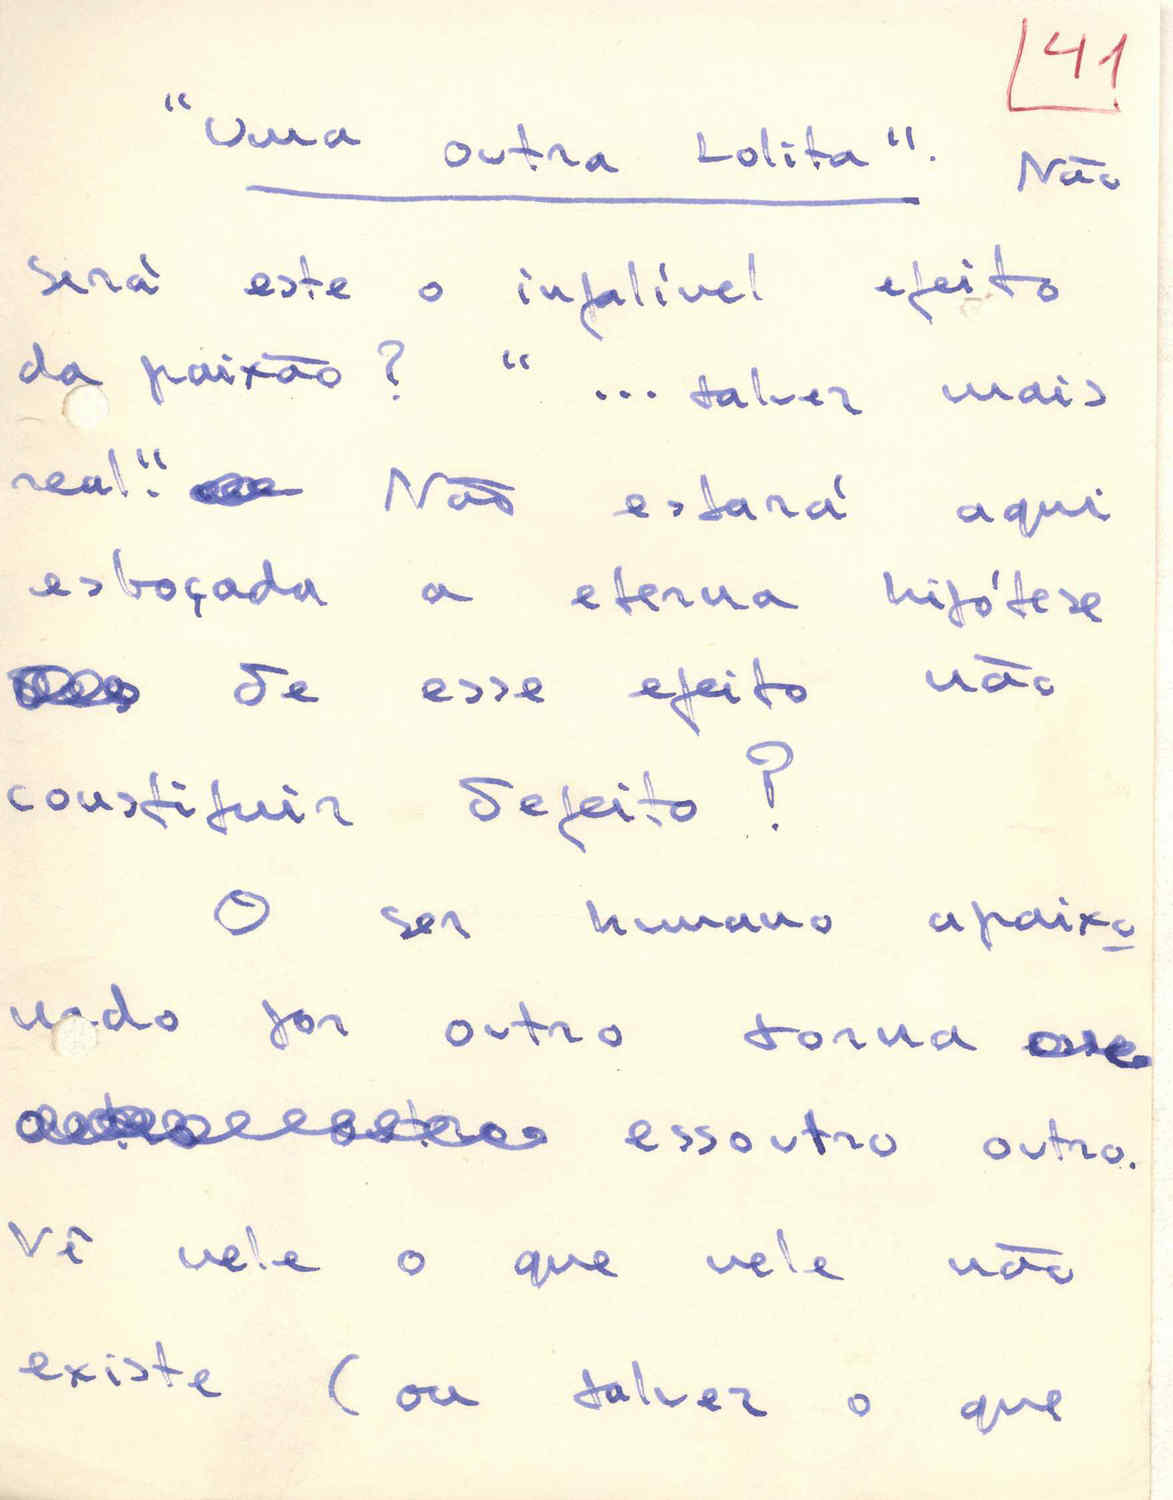 41
"Uma outra Lolita". Não
será este o infalível efeito
da paixão? "...talvez mais
real". Não estará aqui
esboçada a eterna hipótese
de esse efeito não
constituir defeito?
O ser humano apaixo
nado por outro torna
essoutro outro.
Vê nele o que nele não
existe (ou talvez o que